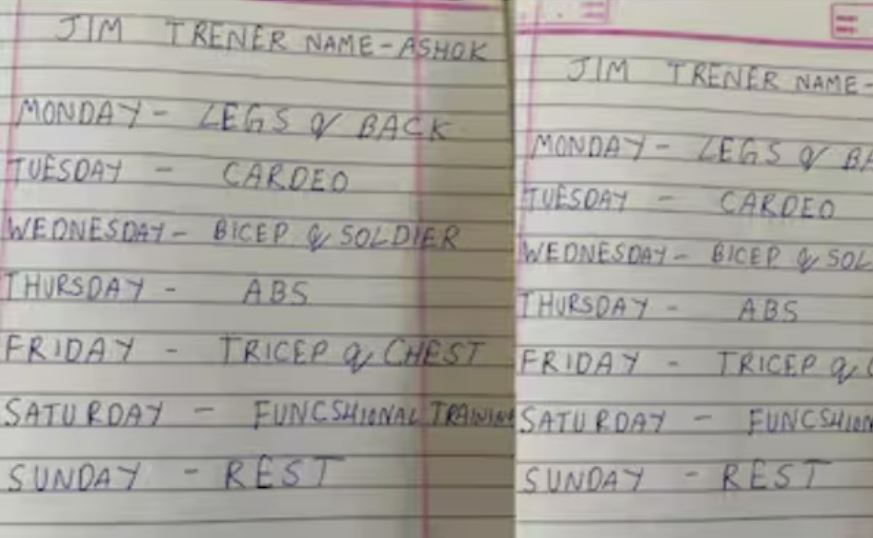 JIM TRENER NAME - ASHOK
MONDAY - LEGS & BACK
TUESDAY - CARDEO
WEDNESDAY - BICEP & SOLDIER
THURSDAY - ABS
FRIDAY - TRICEP & CHEST
SATURDAY - FUNCSHIONAL TRAINING
SUNDAY - REST
JIM TRENER NAME -
MONDAY - LEGS & BA
TUESDAY - CARDEO
WEDNESDAY - BICEP & SOL
THURSDAY - ABS
FRIDAY - TRICEP & C
SATURDAY - FUNCSHION
SUNDAY - REST